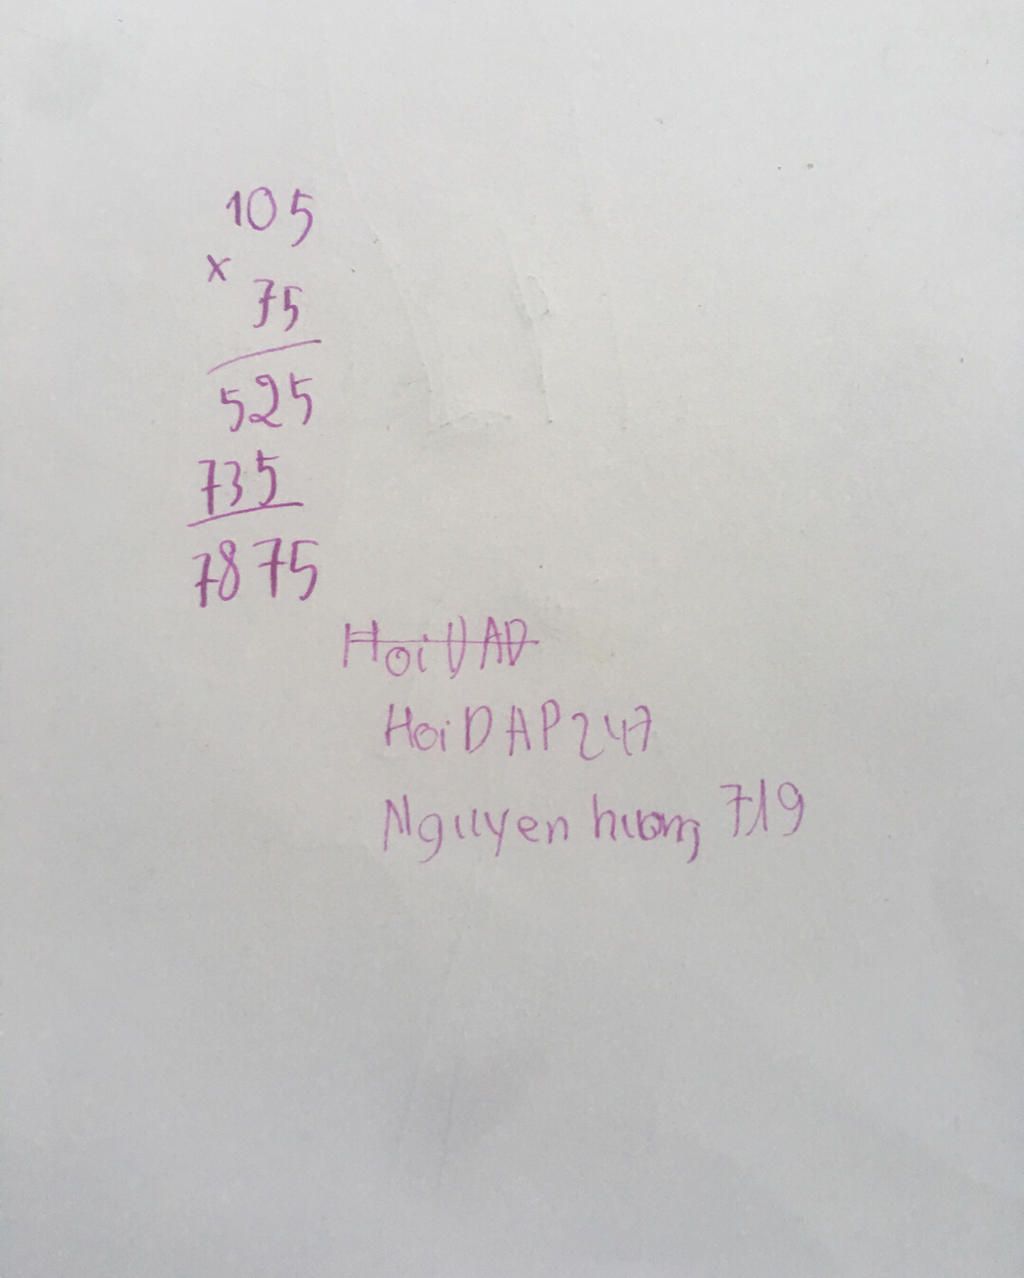 105
×
75
525
735
7875
HoiDAP247
Nguyen huong 719